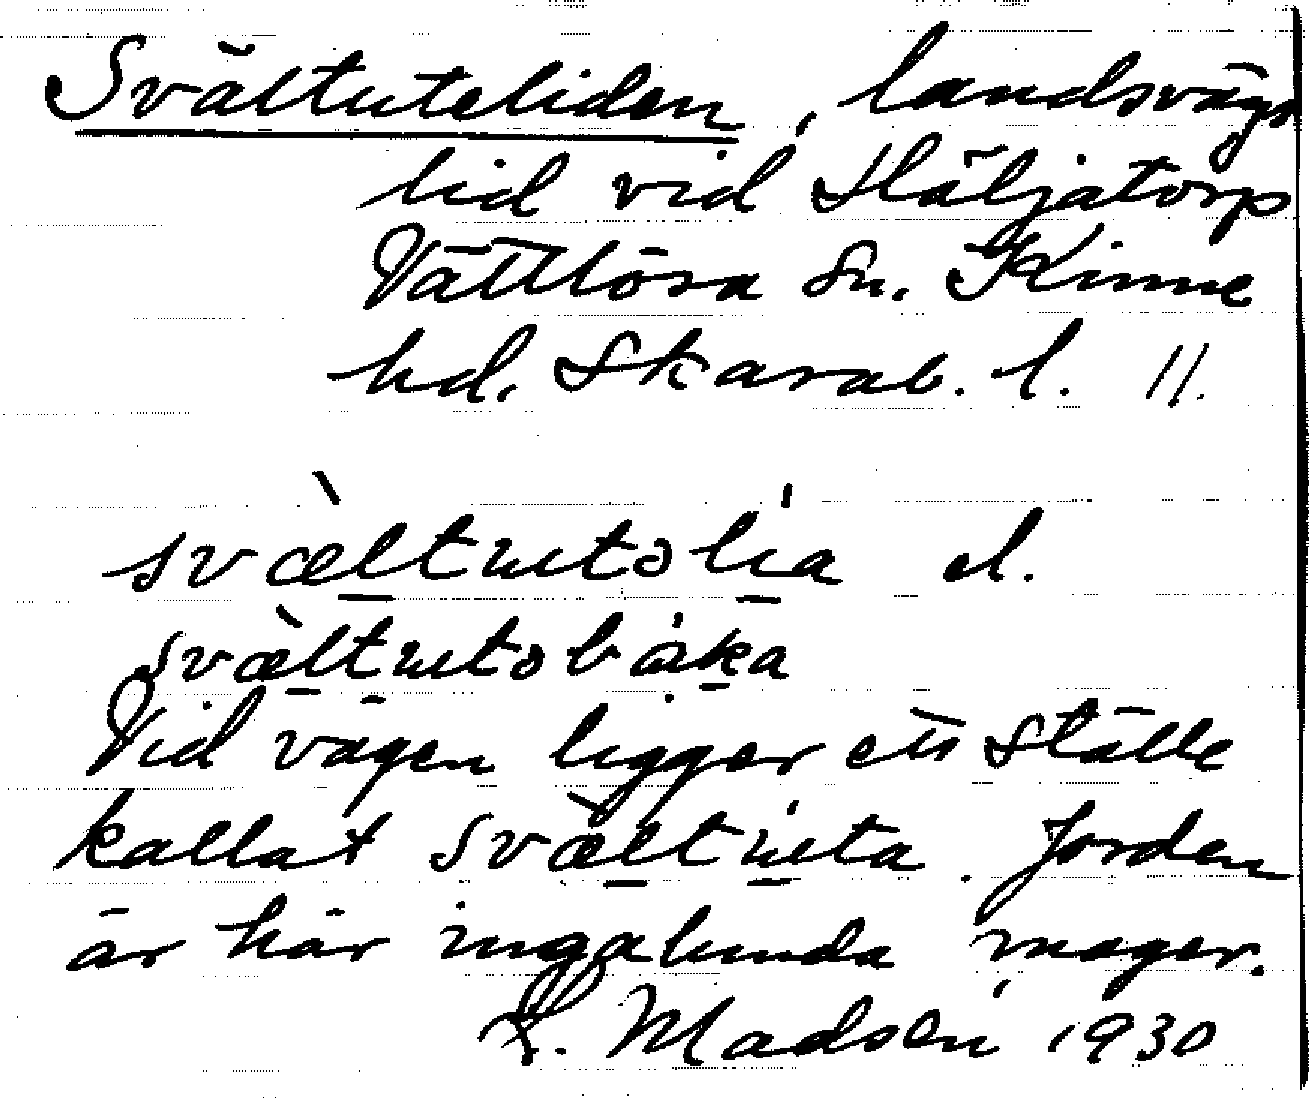 Svältuteliden, landsvägs
lid vid Häljatorp
Vättlösa sn. Kinne
hd. Skarab. l. 11.
svæltutəlia el.
svæltutəbaka
Vid vägen ligger ett ställe
kallat svæltuta. Jorden
är här ingalunda mager.
Madsén 1930